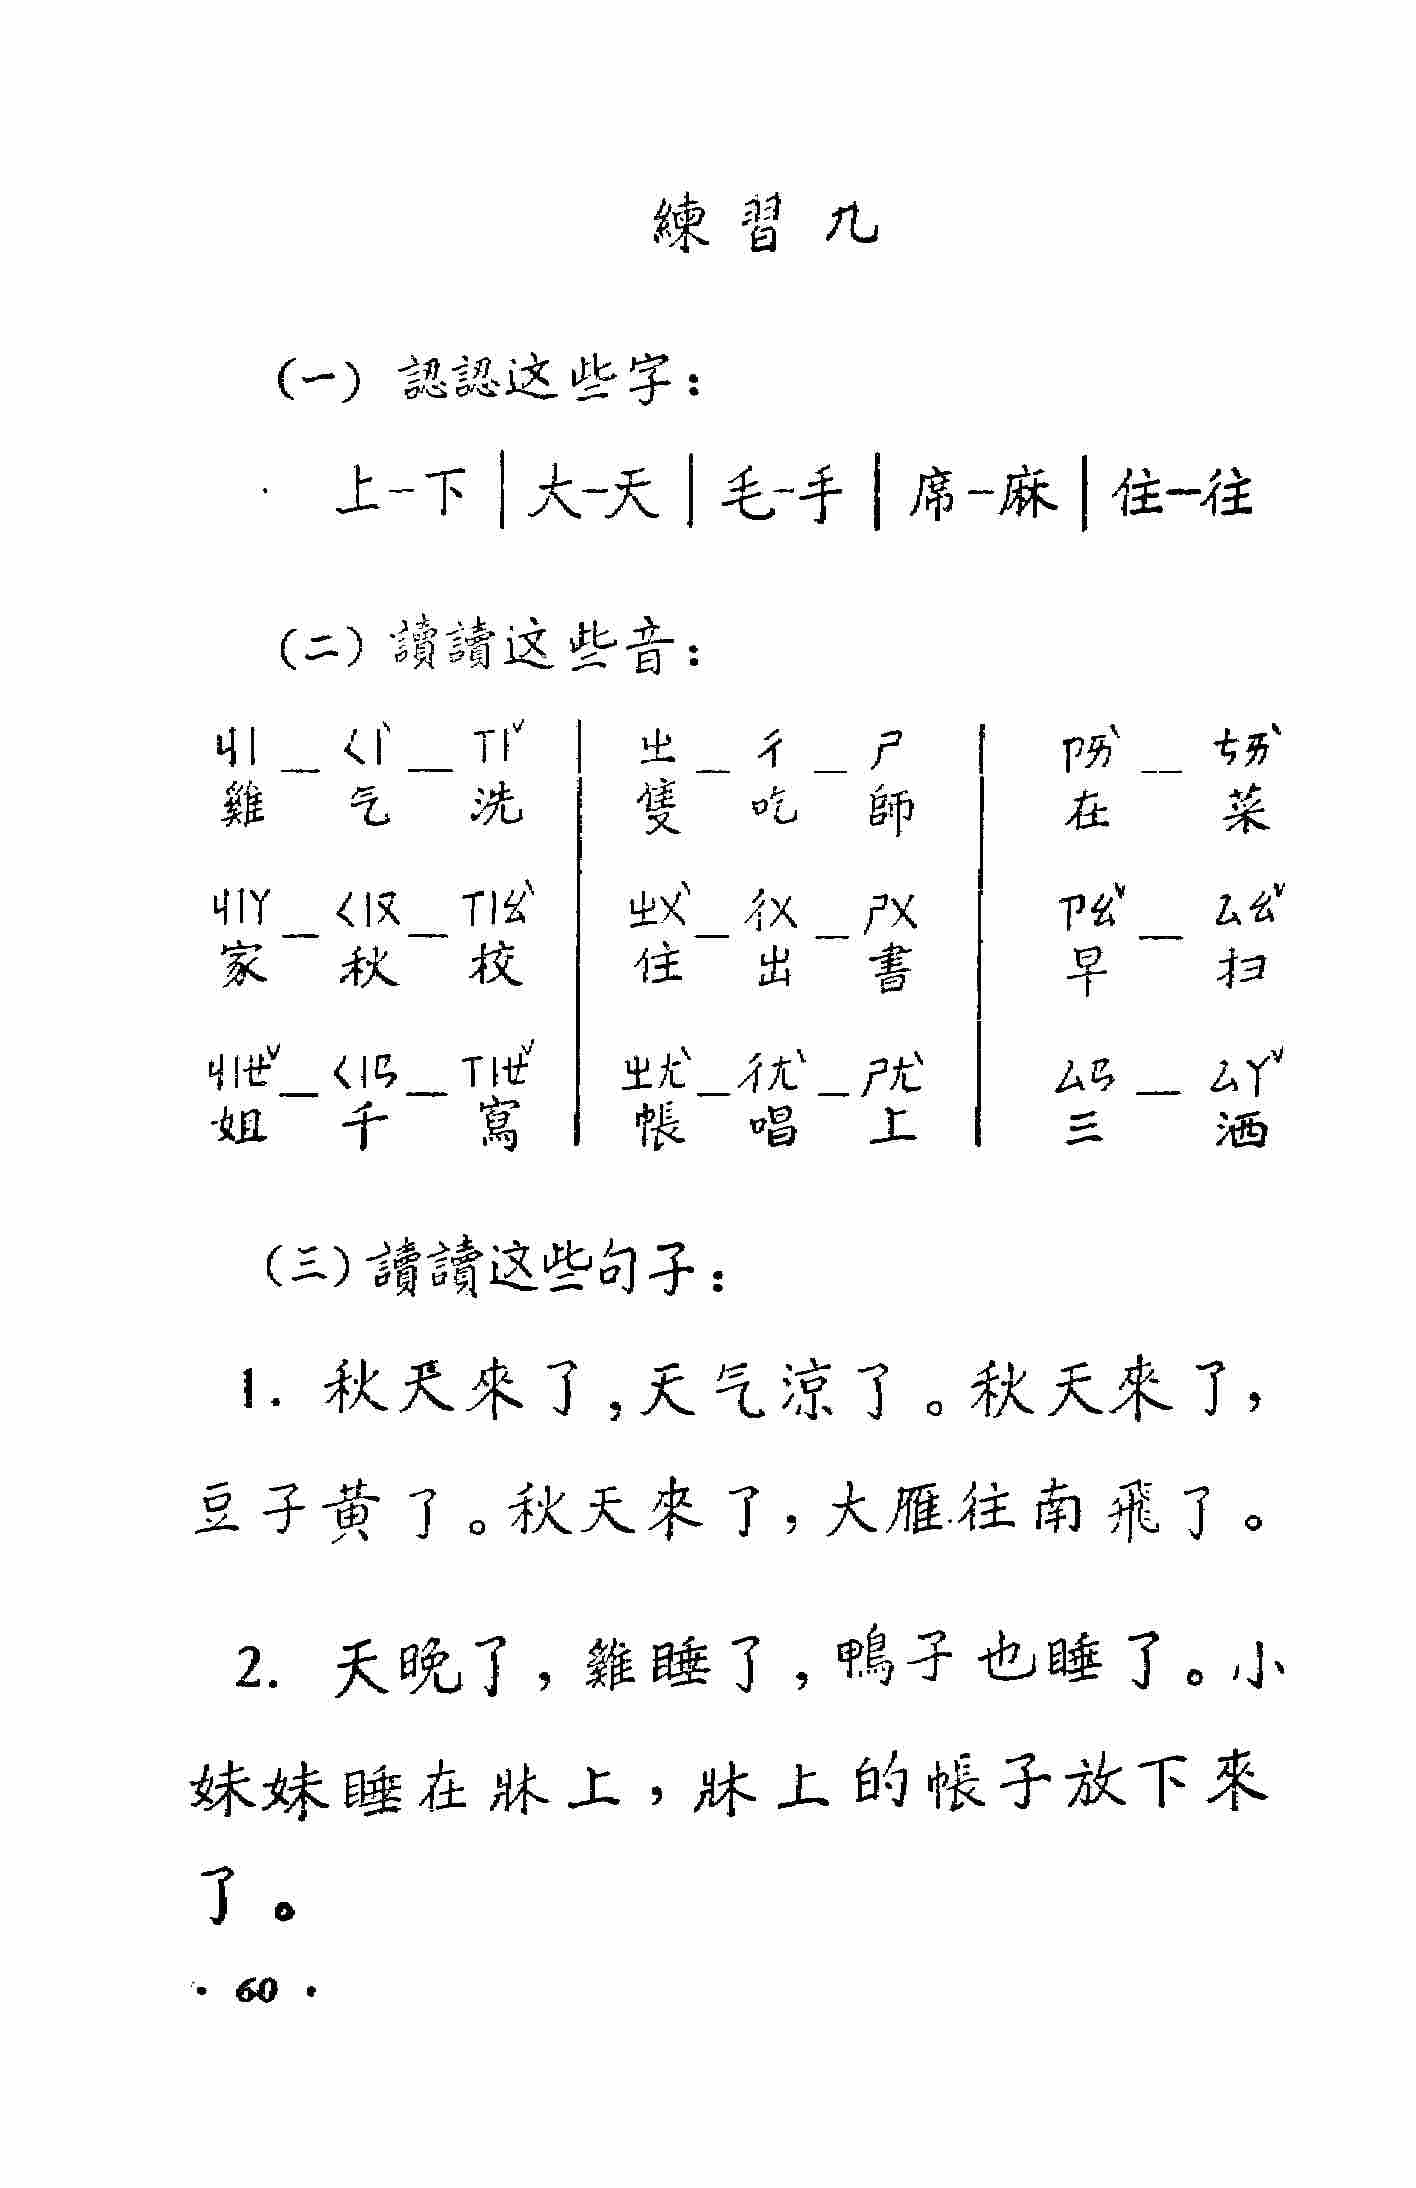 練習九
(一) 認認这些字：
上–下│大–天│毛–手│席–麻│住–往
(二) 讀讀这些音：
ㄐㄧ — ㄑㄧˋ — ㄒㄧˇ │ ㄓ — ㄔ — ㄕ │ ㄗㄞˋ — ㄘㄞˋ
雞 气 洗 │ 隻 吃 師 │ 在 菜
ㄐㄧㄚ — ㄑㄧㄡ — ㄒㄧㄠˋ │ ㄓㄨˋ — ㄔㄨ — ㄕㄨ │ ㄗㄠˇ — ㄙㄠˇ
家 秋 校 │ 住 出 書 │ 早 扫
ㄐㄧㄝˇ — ㄑㄧㄢ — ㄒㄧㄝˇ │ ㄓㄤˋ — ㄔㄤˋ — ㄕㄤˋ │ ㄙㄢ — ㄙㄚˇ
姐 千 寫 │ 帳 唱 上 │ 三 洒
(三) 讀讀这些句子：
1. 秋天來了，天气涼了。秋天來了，
豆子黄了。秋天來了，大雁往南飛了。
2. 天晚了，雞睡了，鴨子也睡了。小
妹妹睡在牀上，牀上的帳子放下來
了。
· 60 ·